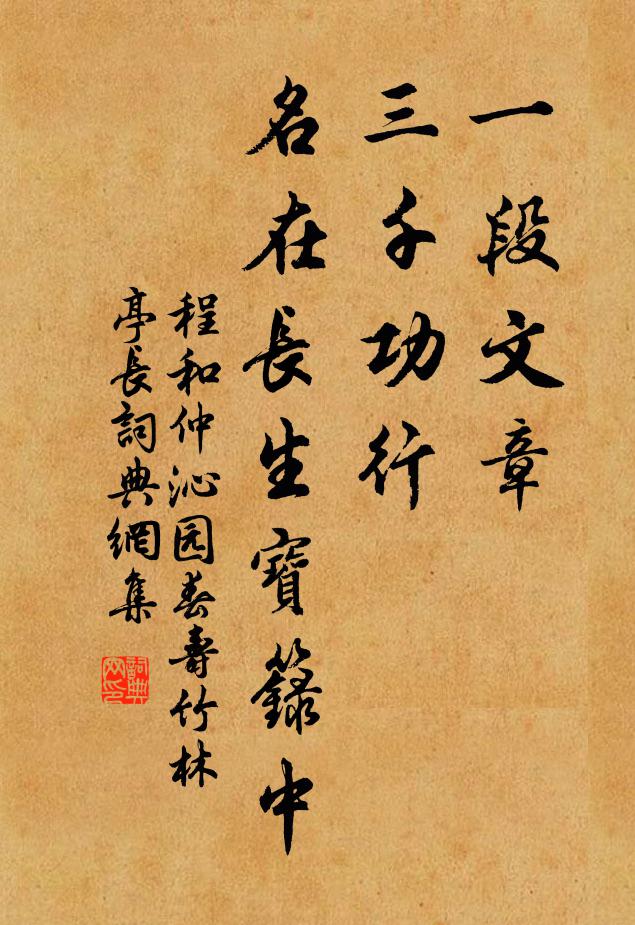 一段文章
三千功行
名在長生寶籙中
程和仲沁园春壽竹林
亭長詞典網集
詞典網印